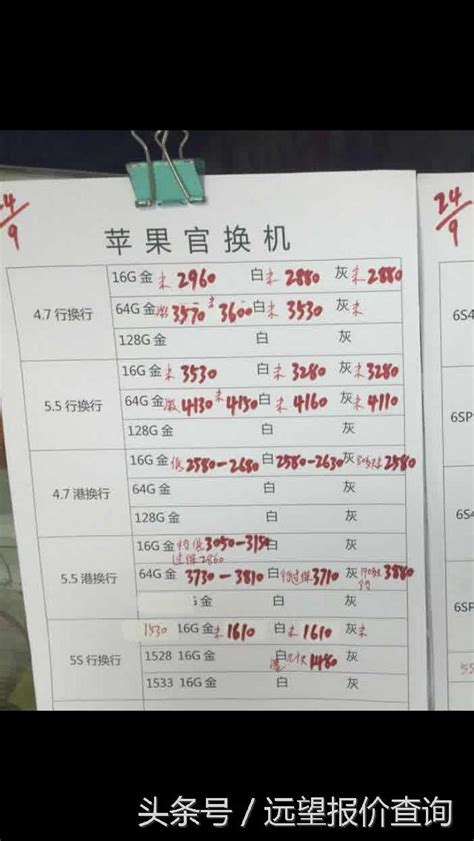 24/9
24/9
苹果官换机
4.7 行换行
16G 金 未 2960 白 未 2880 灰 未 2880
64G 金 激 3570 未 3600 白 未 3530 灰 未
128G 金 白 灰
5.5 行换行
16G 金 未 3530 白 未 3280 灰 未 3280
64G 金 激 4130 未 4150 白 未 4160 灰 未 4110
128G 金 白 灰
4.7 港换行
16G 金 低 2580-2680 白 2580-2630 灰 2580
64G 金 白 灰
128G 金 白 灰
5.5 港换行
16G 金 3050-3150 白 灰
过保 2860
64G 金 3730-3810 白 过保 3710 灰 3880
G 金 白 灰
5S 行换行
1530 16G 金 未 1610 白 未 1610 灰 未
1528 16G 金 白 1480 灰
1533 16G 金 白 灰
6S4
6SP
6S4
6SP
头条号 / 远望报价查询